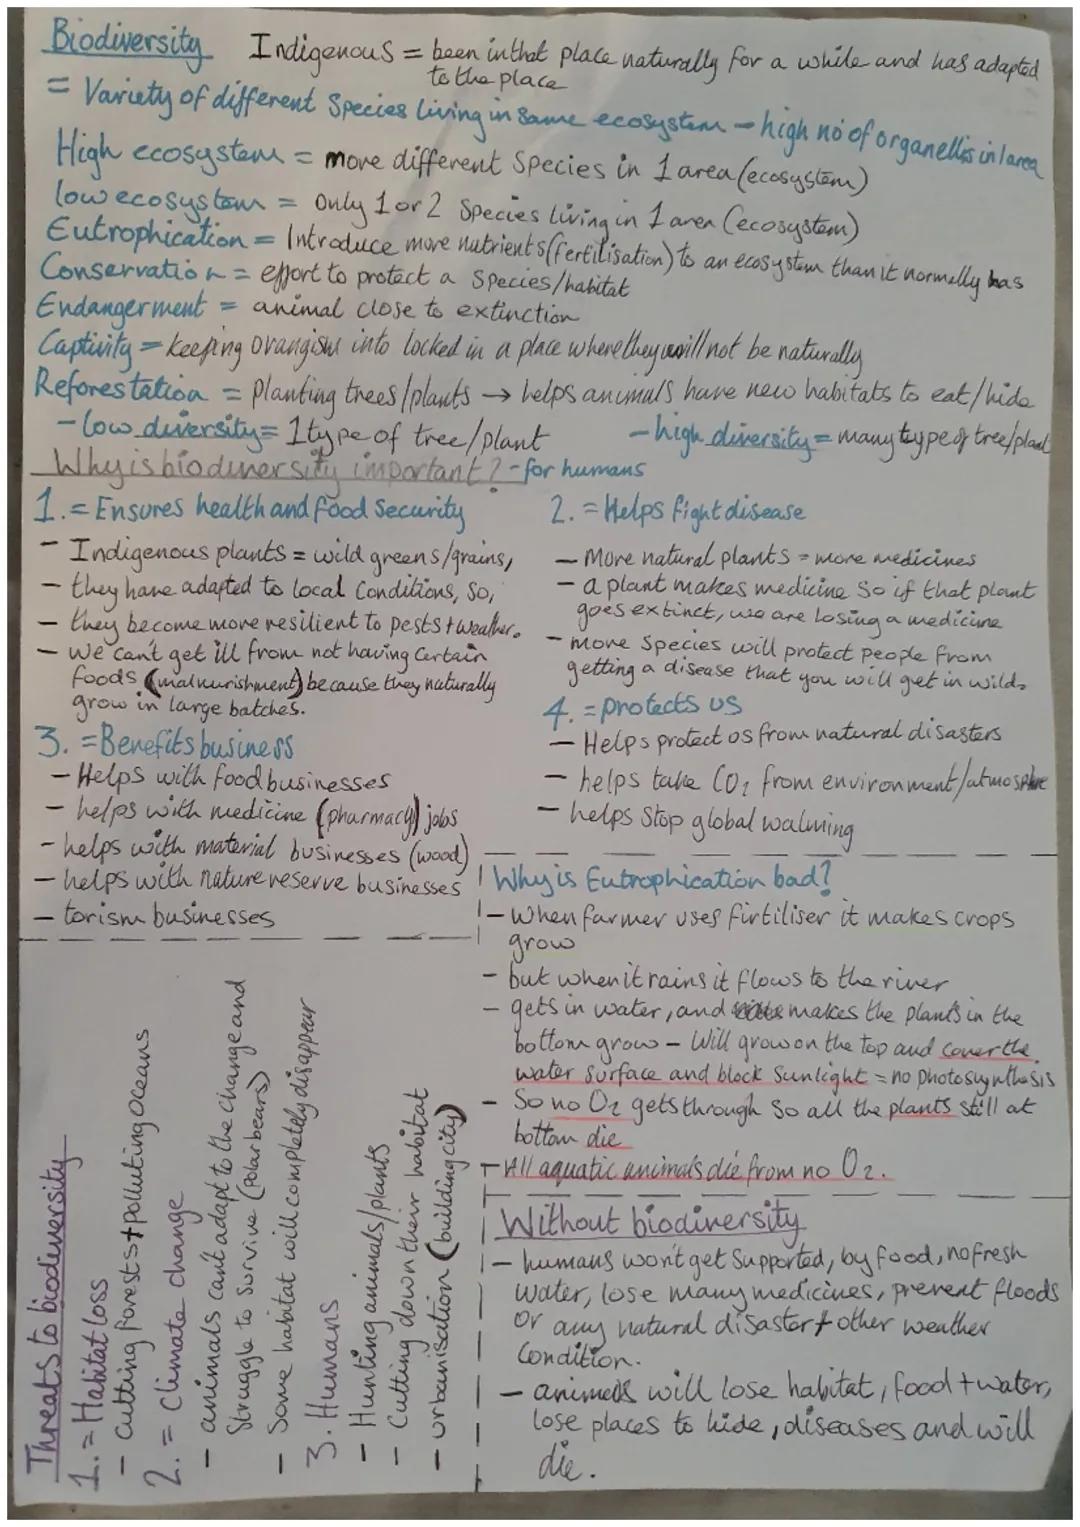 Biodiversity
Indigenous = been in that place naturally for a while and has adapted
to the place
= Variety of different Species living in same ecosystem - high no of organellis in 1 area
High ecosystem = more different Species in 1 area (ecosystem)
low ecosystem = Only 1 or 2 Species living in 1 area (ecosystem)
Eutrophication = Introduce more nutrients (fertilisation) to an ecosystem than it normally has
Conservation = effort to protect a Species/habitat
Endangerment = animal close to extinction
Captivity = keeping orangism into locked in a place where they will not be naturally
Reforestation = Planting trees/plants → helps animals have new habitats to eat/hide
- low diversity = 1 type of tree/plant
- high diversity = many type of tree/plant
Why is biodiversity important? - for humans
1. = Ensures health and food Security
- Indigenous plants = wild greens/grains,
- they have adapted to local Conditions, So,
- they become more resilient to pests + weather.
- We can't get ill from not having Certain
foods (malnurishment) because they naturally
grow in large batches.
2. = Helps fight disease
- More natural plants = more medicines
- a plant makes medicine So if that plant
goes extinct, we are losing a medicine
- more Species will protect people from
getting a disease that you will get in wild.
3. = Benefits business
- Helps with food businesses
- helps with medicine (pharmacy) jobs
- helps with material businesses (wood)
- helps with nature reserve businesses
- torism businesses
4. = protects us
- Helps protect us from natural disasters
- helps take CO2 from environment/atmosphere
- helps Stop global walming
Why is Eutrophication bad?
- When farmer uses firtiliser it makes crops
grow
- but when it rains it flows to the river
- gets in water, and makes the plants in the
bottom grow - Will grow on the top and cover the
water surface and block Sunlight = no photosynthesis
- So no O2 gets through So all the plants still at
bottom die
- All aquatic animals die from no O2.
Without biodiversity
- humans won't get Supported, by food, no fresh
water, lose many medicines, prevent floods
or any natural disaster + other weather
Condition.
- animals will lose habitat, food + water,
lose places to hide, diseases and will
die.
Threats to biodiversity
1. = Habitat loss
- Cutting forests + polluting oceans
2. = Climate change
- animals can't adapt to the change and
Struggle to Survive (Polar bears)
- Some habitat will completely disappear
3. Humans
- Hunting animals/plants
- Cutting down their habitat
- urbanisation (building city)